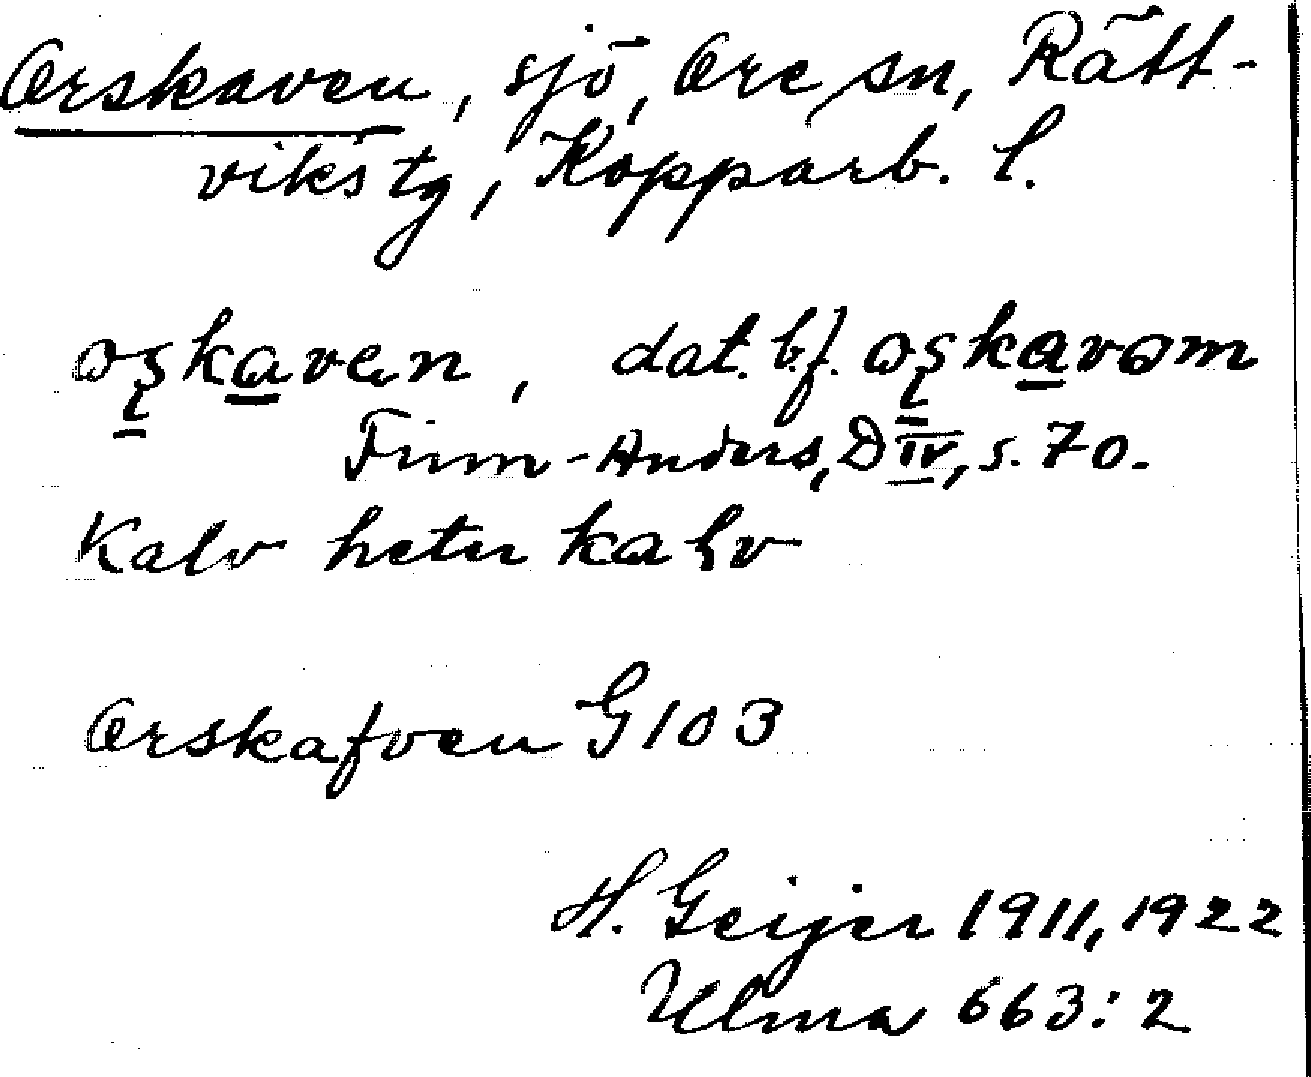 Orskaven, sjö, Ore sn, Rätt-
viks tg, Kopparb. l.
dat. b.f.
Finn-Anders, D IV, s. 70.
Kalv heter kalv
Orskafven G 103
H. Geijer 1911, 1922
Ulma 663:2